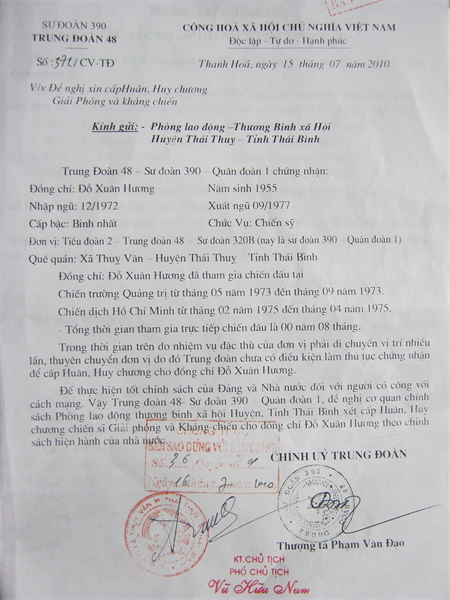 SƯ ĐOÀN 390
TRUNG ĐOÀN 48
CỘNG HOÀ XÃ HỘI CHỦ NGHĨA VIỆT NAM
Độc lập - Tự do - Hạnh phúc
Số: 572/ CV-TĐ
Thanh Hoá, ngày 15 tháng 07 năm 2010
V/v Đề nghị xin cấpHuân, Huy chương
Giải Phóng và kháng chiến
Kính gửi: - Phòng lao động –Thương Binh xã Hội
Huyện Thái Thuỵ – Tỉnh Thái Bình
Trung Đoàn 48 – Sư đoàn 390 – Quân đoàn 1 chứng nhận:
Đồng chí: Đỗ Xuân Hương
Năm sinh 1955
Nhập ngũ: 12/1972
Xuất ngũ 09/1977
Cấp bậc: Binh nhất
Chức Vụ: Chiến sỹ
Đơn vị: Tiểu đoàn 2 – Trung đoàn 48 – Sư đoàn 320B (nay là sư đoàn 390 – Quân đoàn 1)
Quê quán: Xã Thuỵ Văn – Huyện Thái Thuỵ – Tỉnh Thái Bình
Đồng chí: Đỗ Xuân Hương đã tham gia chiến đấu tại
Chiến trường Quảng trị từ tháng 05 năm 1973 đến tháng 09 năm 1973.
Chiến dịch Hồ Chí Minh từ tháng 02 năm 1975 đến tháng 04 năm 1975.
- Tổng thời gian tham gia trực tiếp chiến đấu là 00 năm 08 tháng.
Trong thời gian trên do nhiệm vụ đặc thù của đơn vị phải di chuyển vị trí nhiều
lần, thuyên chuyển đơn vị do đó Trung đoàn chưa có điều kiện làm thủ tục chứng nhận
để cấp Huân, Huy chương cho đồng chí Đỗ Xuân Hương.
Để thực hiện tốt chính sách của Đảng và Nhà nước đối với người có công với
cách mạng. Vậy Trung đoàn 48- Sư đoàn 390 – Quân đoàn 1, đề nghị cơ quan chính
sách Phòng lao động thương binh xã hội Huyện, Tỉnh Thái Bình xét cấp Huân, Huy
chương chiến sĩ Giải phóng và Kháng chiến cho đồng chí Đỗ Xuân Hương theo chính
sách hiện hành của nhà nước.
BẢN SAO ĐÚNG VỚI BẢN CHÍNH
Số 36
Ngày 16 tháng 7 năm 2010
CHÍNH UỶ TRUNG ĐOÀN
Thượng tá Phạm Văn Đạo
KT.CHỦ TỊCH
PHÓ CHỦ TỊCH
Vũ Hữu Nam